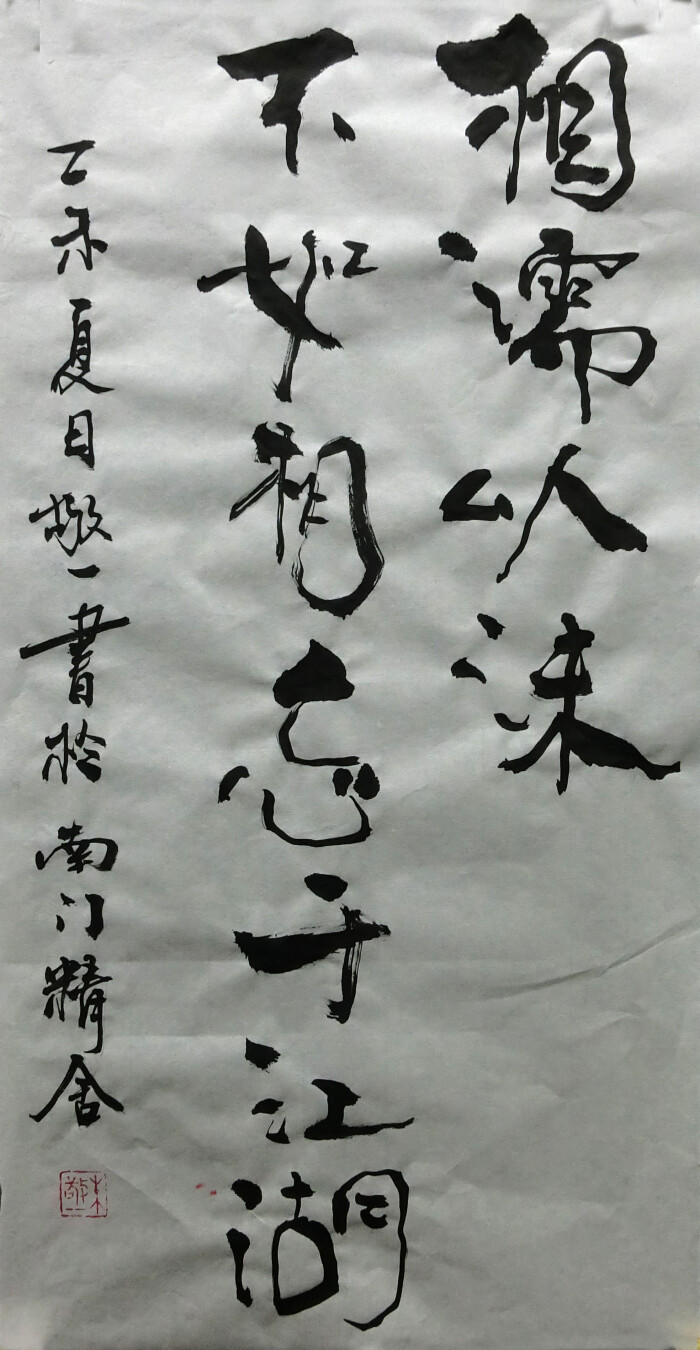 相濡以沫
不如相忘于江湖
丁亥夏日敬一書於南门精舍